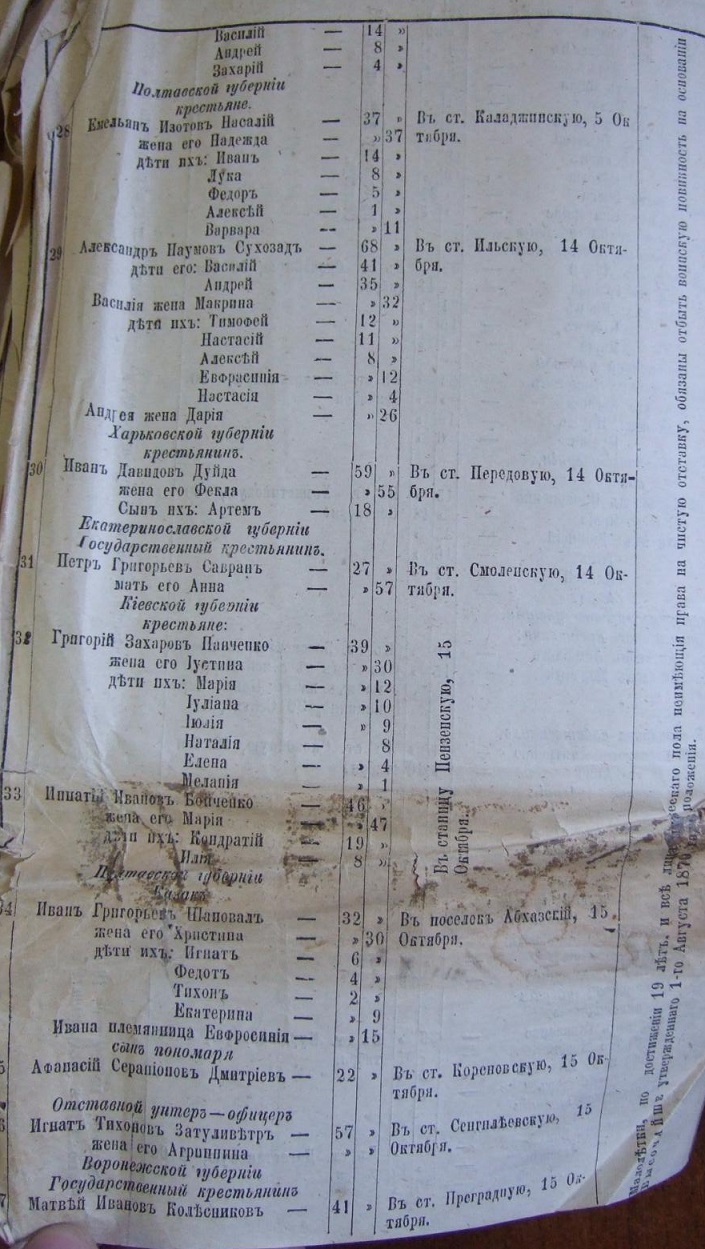 Василій — 14 »
Андрей — 8 »
Захарій — 4 »
Полтавской губерніи
крестьяне.
28 Емельянъ Изотовъ Насалій — 37 » Въ ст. Каладжинскую, 5 Ок
жена его Надежда — » 37 тября.
дѣти ихъ: Иванъ — 14 »
Лука — 8 »
Федоръ — 5 »
Алексѣй — 1 »
Варвара — » 11
29 Александръ Наумовъ Сухозадъ — 68 » Въ ст. Ильскую, 14 Октя-
дѣти его: Василій — 41 » бря.
Андрей — 35 »
Василія жена Макрина — » 32
дѣти ихъ: Тимофей — 12 »
Настасій — 11 »
Алексѣй — 8 »
Евфрасинія — » 12
Настасія — » 4
Андрея жена Дарія — » 26
Харьковской губерніи
крестьянинъ.
30 Иванъ Давидовъ Дуйда — 59 » Въ ст. Передовую, 14 Октя-
жена его Фекла — » 55 бря.
Сынъ ихъ: Артемъ — 18 »
Екатеринославской губерніи
Государственный крестьянинъ.
31 Петръ Григорьевъ Савранъ — 27 » Въ ст. Смоленскую, 14 Ок-
мать его Анна — » 57 тября.
Кіевской губерніи
крестьяне:
32 Григорій Захаровъ Панченко — 39 »
жена его Іустина — » 30
дѣти ихъ: Марія — » 12
Іуліана — » 10
Іюлія — » 9
Наталія — 8
Елена — » 4
Меланія — » 1
33 Игнатій Ивановъ Бойченко — 46 »
жена его Марія — » 47
дѣти ихъ: Кондратій — 19 »
Илья 8 »
Въ станицу Пензенскую, 15
Октября.
Полтавской губерніи
Казакъ
34 Иванъ Григорьевъ Шаповалъ — 32 » Въ поселокъ Абхазскій, 15
жена его Христина — » 30 Октября.
дѣти ихъ: Игнатъ — 6 »
Федотъ — 4 »
Тихонъ — 2 »
Екатерина — » 9
Ивана племянница Евфросинія — » 15
сынъ пономаря
5 Афанасій Серапіоновъ Дмитріевъ — 22 » Въ ст. Кореновскую, 15 Ок-
тября.
Отставной унтеръ—офицеръ
6 Игнатъ Тихоновъ Затуливѣтръ — 57 » Въ ст. Сенгилѣевскую, 15
жена его Агриппина — » » Октября.
Воронежской губерніи
Государственный крестьянинъ
7 Матвѣй Ивановъ Колѣсниковъ — 41 » Въ ст. Преградную, 15 Ок-
тября.
Малолѣтки, по достиженіи 19 лѣтъ. и всѣ лица пола неимѣющія права на чистую отставку, обязаны отбыть воинскую повинность на основаніи
Высочайше утвержденнаго 1-го Августа 1870 положенія.